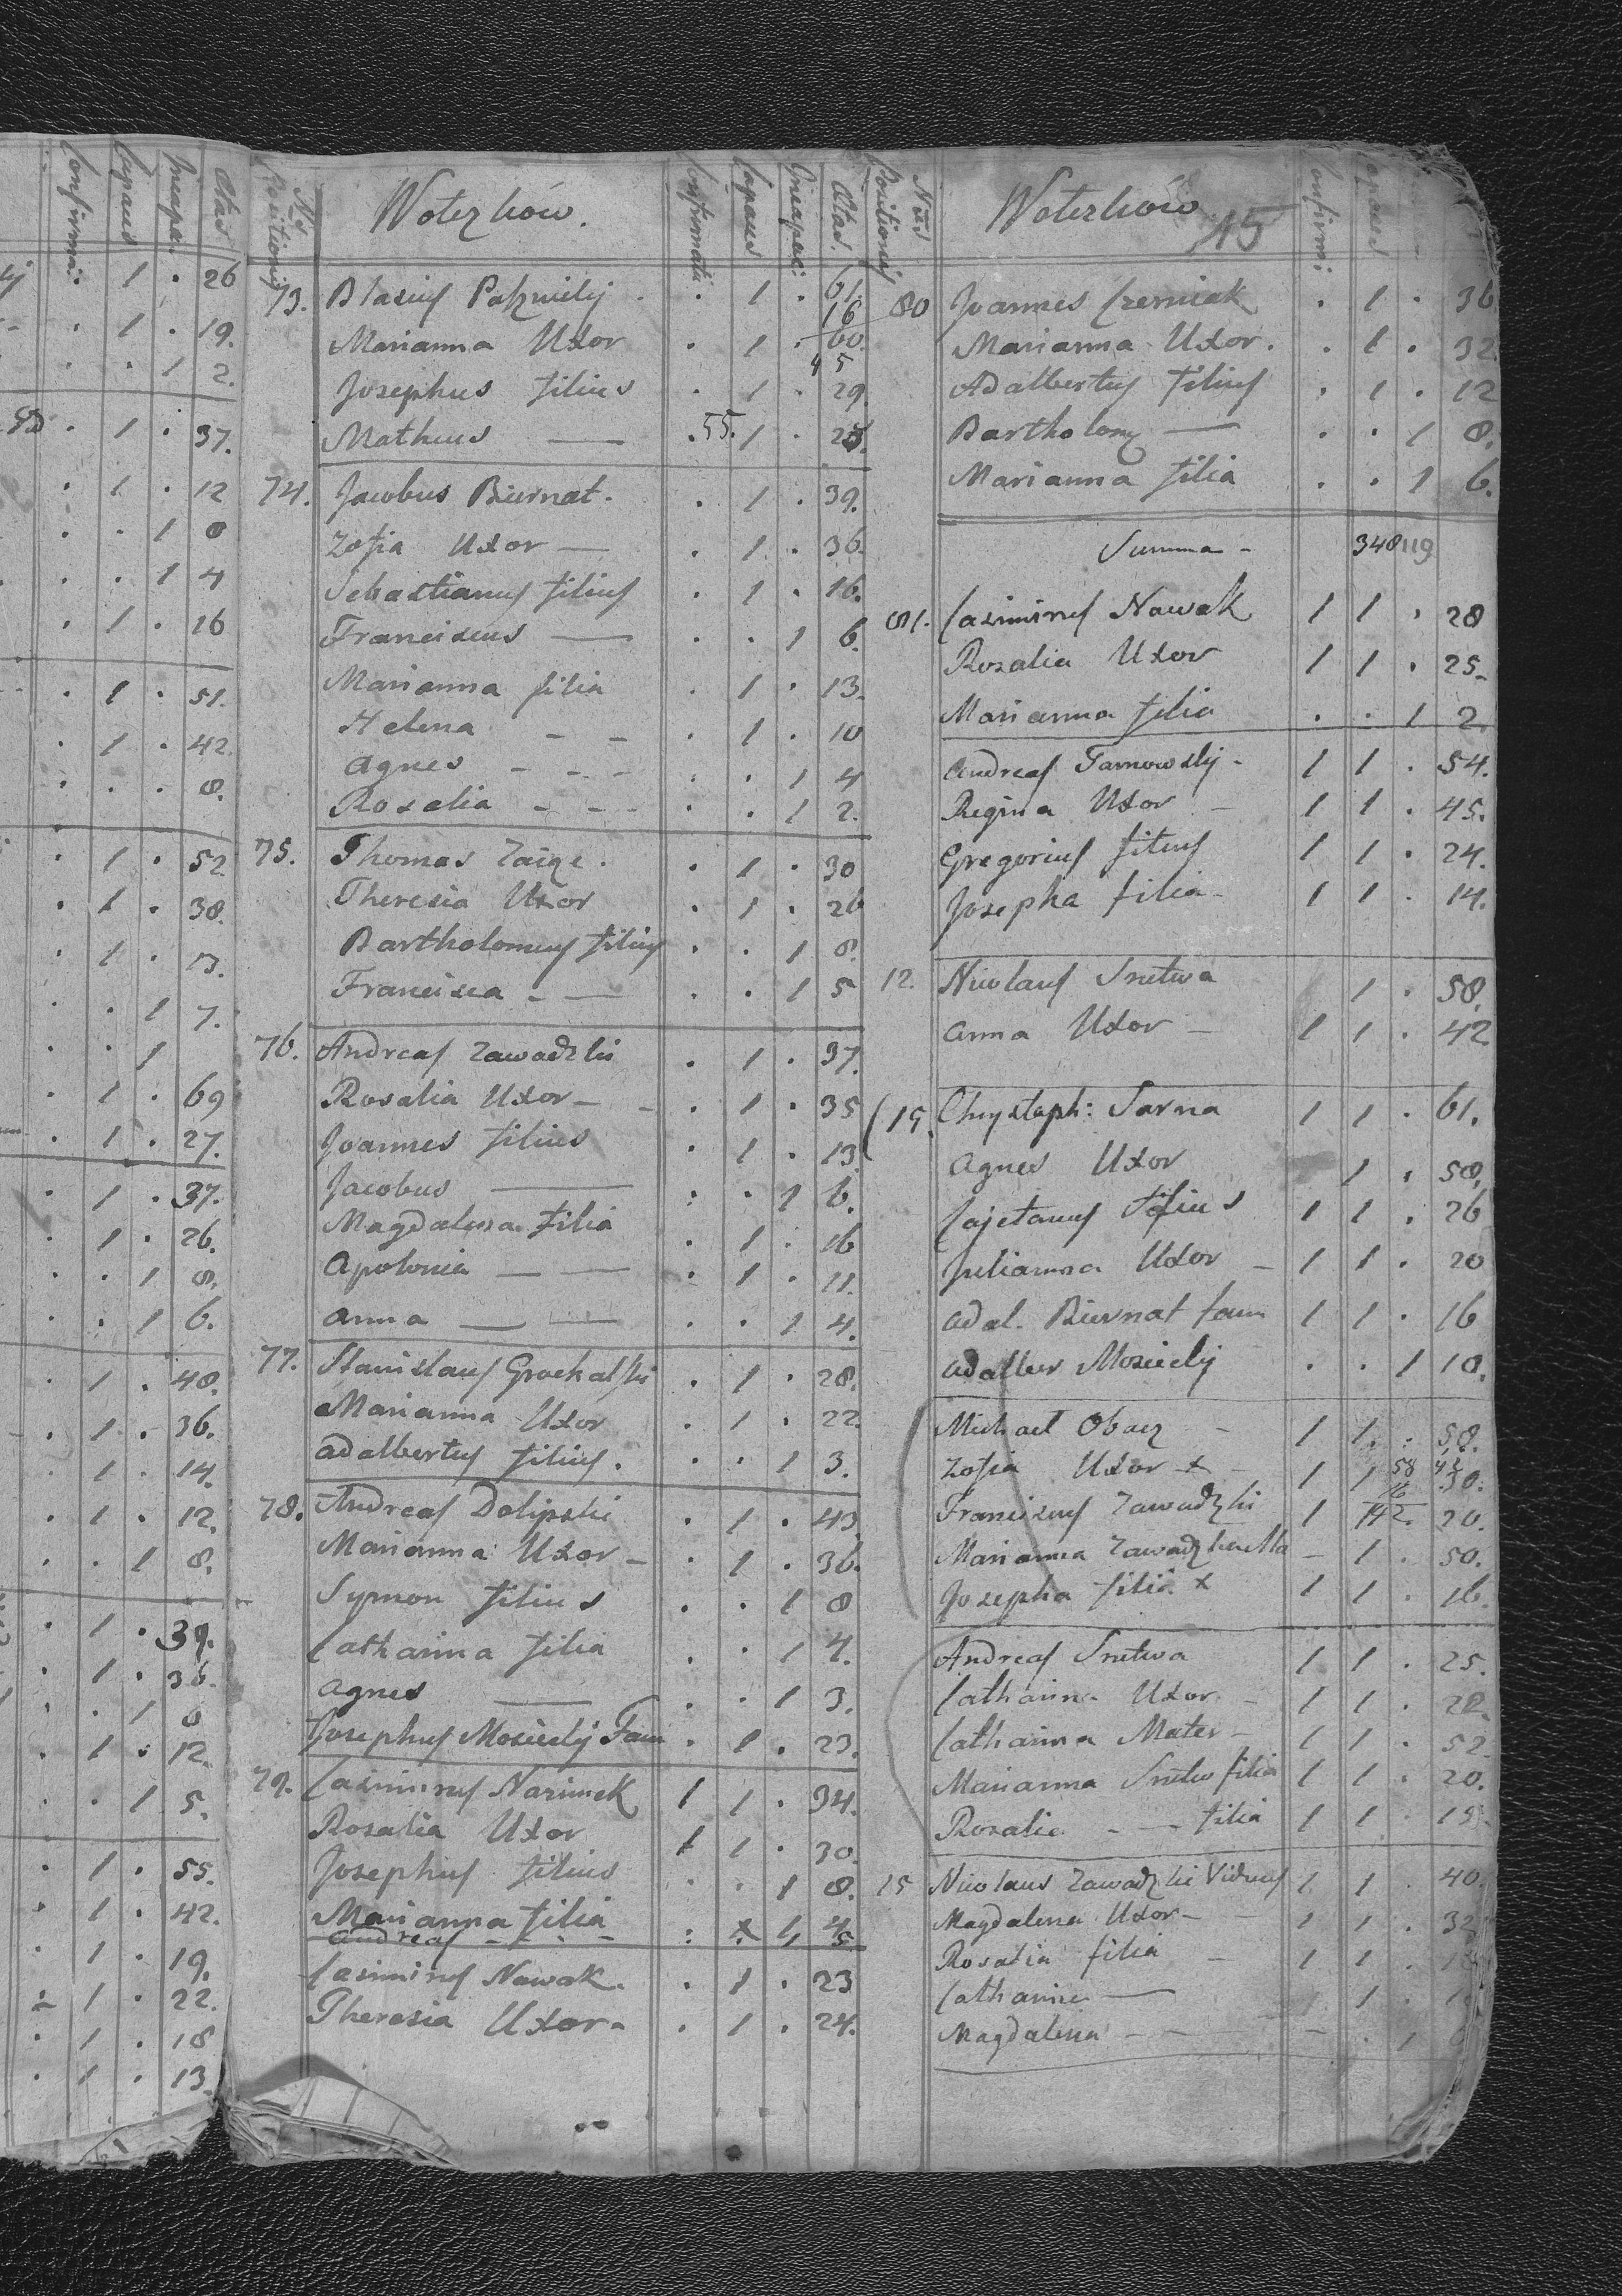 Confirma: Capaces Incapa: Ætas
1 . 26
. 1 . 19.
. . 1 2.
. 1 . 37.
. 1 . 12
. . 1 8
. . 1 4
. 1 . 16
. 1 . 51.
. 1 . 42.
. . . 8.
. 1 . 52.
. 1 . 38.
. 1 . 13.
. . 1 7.
. . 1
. 1 . 69
. 1 . 27.
. 1 . 37.
. 1 . 26.
. . 1 8.
. . 1 6.
. 1 . 48.
. 1 . 36.
. 1 . 14.
. 1 . 12.
. . 1 8.
. 1 . 39.
. 1 . 36.
. 1 8
. 1 . 12.
. . 1 5.
. 1 . 55.
. 1 . 42.
. 1 . 19.
- 1 . 22.
. 1 . 18
. 1 . 13.
Nrs Positionis Woterzków. Confirmati Capaces Incapac: Ætas.
73. Blasius . 1 . 61.
16
Marianna Uxor . 1 . 60.
45
Josephus filius . 1 . 29.
Matheus — . 55. 1 . 25.
74. Jacobus Biernat. . 1 . 39.
Zofia Uxor — . 1 . 36.
Sebastianus filius . 1 . 16.
Franciscus — . . 1 6.
Marianna filia . 1 . 13.
Helena - - . 1 . 10
Agnes - - - . . 1 4
Rosalia - - - . . 1 2.
75. Thomas . 1 . 30
Theresia Uxor . 1 . 26
Bartholomeus filius . . 1 8.
Francisca - — . . 1 5
76. Andreas Zawadzki . 1 . 37.
Rosalia Uxor - - . 1 . 35
Joannes filius . 1 . 13.
Jacobus — . . 1 6.
Magdalena filia . 1 . 16
Apolonia — — . 1 . 11.
Anna — — . . 1 4.
77. Stanislaus Grochalski . 1 . 28.
Marianna Uxor . 1 . 22.
Adalbertus filius. . . 1 3.
78. Andreas Dolipski . 1 . 43.
Marianna Uxor - . 1 . 36.
Symon filius . . 1 8
Catharina filia . . 1 4.
Agnes — . . 1 3.
Josephus Mosiecky Fam . 1 . 23.
79. Casimirus Narimek 1 1 . 34.
Rosalia Uxor 1 1 . 30.
Josephus filius . . 1 8.
Marianna filia . . 1 4.
Andreas - - . x 1 5
Casimirus Nowak. . 1 . 23
Theresia Uxor - . 1 . 24.
Nrus Positionis Woterzków 15 Confirm: Capaces
80 Joannes Czerniak . 1 . 36.
Marianna Uxor. . 1 . 32.
Adalbertus filius . 1 . 12
Bartholomę — . . 1 8.
Marianna filia . . 1 6.
Summa - 348 119
81. Casimirus Nowak 1 1 . 28
Rozalia Uxor 1 1 . 25.
Marianna filia . . 1 2
Andreas Tarnowsky - 1 1 . 54.
Regina Uxor - 1 1 . 45.
Gregorius filius 1 1 . 24.
Josepha filia - 1 1 . 14.
12. Nicolaus Snitwa 1 . 58.
Anna Uxor - 1 1 . 42
(15. Chrystoph: Sarna 1 1 . 61.
Agnes Uxor 1 . 50.
Cajetanus filius 1 1 . 26
Julianna Uxor - 1 1 . 20
Adal. Biernat fam 1 1 . 16
Adalber Mosiecky . . 1 10.
Michael Obacz - 1 1 . 58.
58 42
Zofia Uxor x - 1 1 . 30.
16
Franciscus Zawadzki 1 142. 20.
Marianna - 1 . 50.
Josepha filia x 1 1 . 16.
Andreas Snitwa 1 1 . 25.
Catharina Uxor - 1 1 . 22.
Catharina Mater - 1 1 . 52.
Marianna Snitw filia 1 1 . 20.
Rosalia - — filia 1 1 . 15.
15 Nicolaus Zawadzki Viduus 1 1 . 40.
Magdalena Uxor - - 1 1 . 32.
Rosalia filia - 1 1 .
Catharina — 1 .
Magdalena - - - . 1